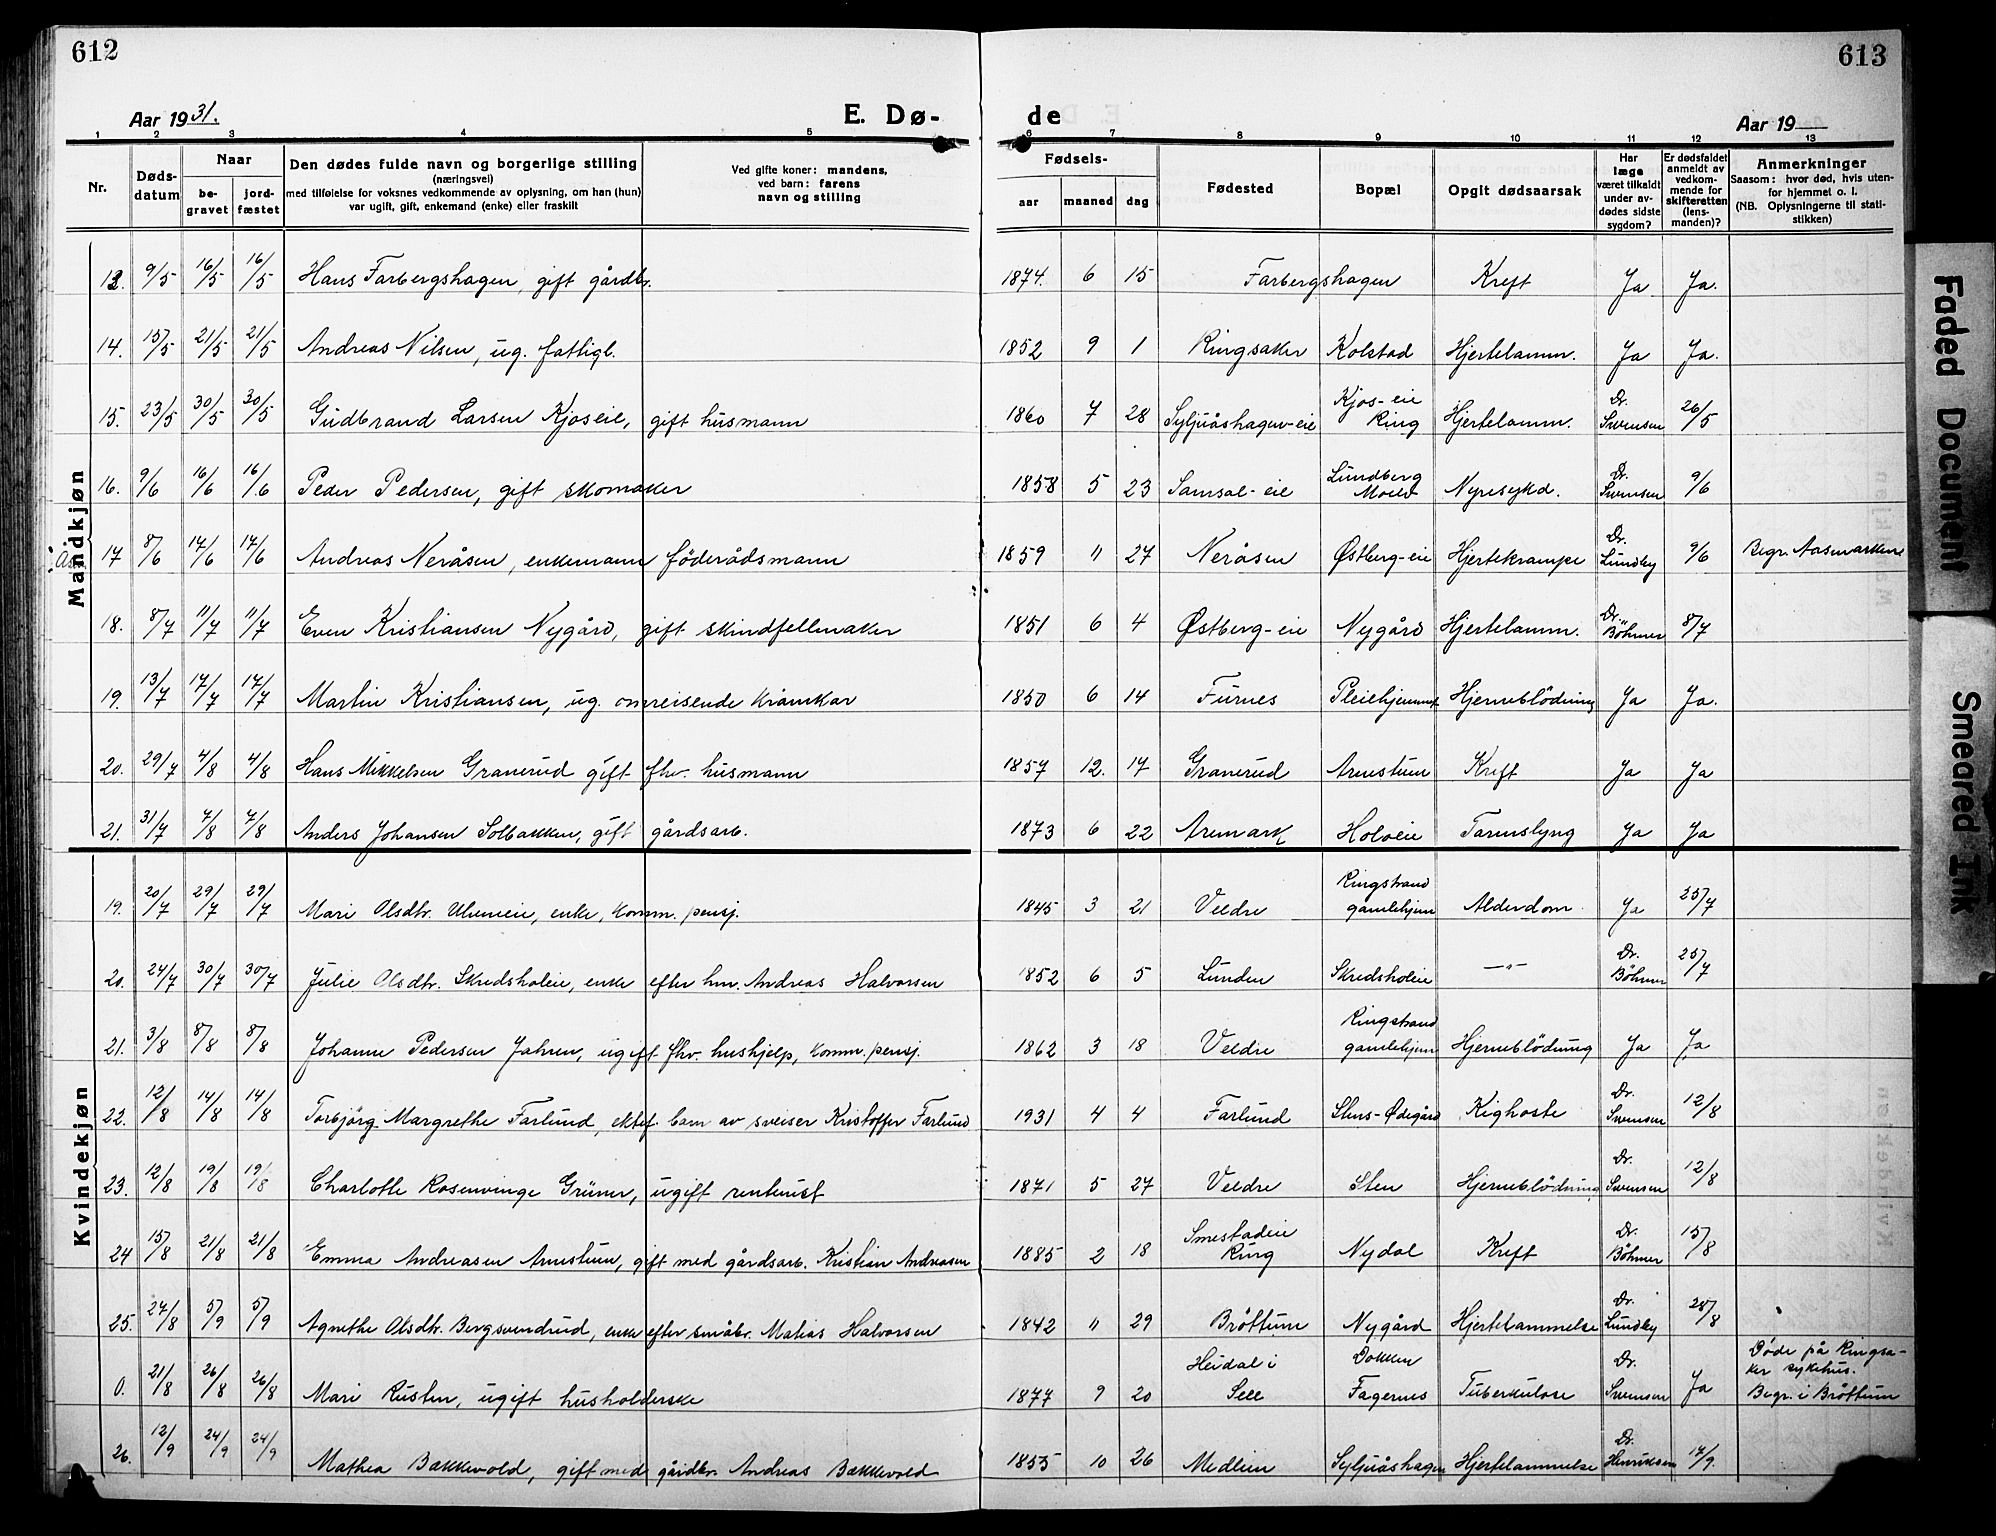 612
613
Aar 1931.
E. Dø-
de
Aar 19
1 2 3 4 5 6 7 8 9 10 11 12 13
Nr.
Døds-
datum
Naar
be-
gravet
jord-
fæstet
Den dødes fulde navn og borgerlige stilling
(næringsvei)
med tilføielse for voksnes vedkommende av oplysning, om han (hun)
var ugift, gift, enkemand (enke) eller fraskilt
Ved gifte koner: mandens,
ved barn: farens
navn og stilling
Fødsels-
aar maaned dag
Fødested
Bopæl
Opgit dødsaarsak
Har
læge
været tilkaldt
under av-
dødes sidste
sygdom?
Er dødsfaldet
anmeldt av
vedkom-
mende for
skifteretten
(lens-
manden)?
Anmerkninger
Saasom: hvor død, hvis uten-
for hjemmet o. l.
(NB. Oplysningerne til stati-
stikken)
Mandkjøn
13. 9/5 16/5 16/5 Hans Farbergshagen, gift gårdbr. 1874. 6 15 Farbergshagen Kreft Ja Ja.
14. 15/5 21/5 21/5 Andreas Nilsen, ug. fattigl. 1852 9 1 Ringsaker Kolstad Hjertelamm. Ja Ja.
15. 23/5 30/5 30/5 Gudbrand Larsen Kjoseie, gift husmann 1860 7 28 Syljuåshagen-eie Kjos-eie Ring Hjertelamm. Dr. Svensen 26/5
16. 9/6 16/6 16/6 Peder Pedersen, gift skomaker 1858 5 23 Samsal-eie Lundberg Moelv Nyresykd. Dr. Svensen 9/6
17 8/6 14/6 14/6 Andreas Neråsen, enkemann föderådsmann 1859 11 27 Neråsen Østberg-eie Hjertekrampe Dr. Lundby 9/6 Begr. Aasmarken
18. 8/7 11/7 11/7 Even Kristiansen Nygård, gift skindfellmaker 1851 6 4 Østberg-eie Nygård Hjertelamm. Dr. Böhmer 8/7
19. 13/7 17/7 17/7 Martin Kristiansen, ug. omreisende kramkar 1850 6 14 Furnes Pleiehjemmet Hjerneblödning Ja Ja.
20. 29/7 4/8 4/8 Hans Mikkelsen Granerud gift fhv. husmann 1857 12. 17 Granerud Arnestuen Kreft Ja Ja
21. 31/7 7/8 7/8 Anders Johansen Solbakken, gift gårdsarb. 1873 6 22 Aremark Holoeie Tarmslyng Ja Ja
Kvindekjøn
19. 20/7 29/7 29/7 Mari Olsdtr. enke, komm. pensj. 1845 3 21 Veldre Ringstrand gamlehjem Alderdom Ja 25/7
20. 24/7 30/7 30/7 Julie Olsdtr. Skredsholeie, enke efter hm. Andreas Halvorsen 1852 6 5 Lunden Skredsholeie —"— Dr. Böhmer 25/7
21. 3/8 8/8 8/8 Johanne Pedersen Jahren, ugift fhv. hushjelp, komm. pensj. 1862 3 18 Veldre Ringstrand gamlehjem Hjerneblödning Ja Ja
22. 12/8 14/8 14/8 Torbjörg Margrethe Farlund, ektef. barn av sveiser Kristoffer Farlund 1931 4 4 Farlund Stens-Ødegård Kighoste Dr. Svensen 12/8
23. 12/8 19/8 19/8 Charlotte Rosenvinge Grüner, ugift rentenist 1871 5 27 Veldre Sten Hjerneblödning Dr. Svensen 12/8
24 15/8 21/8 21/8 Emma Andreasen Arnestuen, gift med gårdsarb. Kristian Andreasen 1885 2 18 Smestadeie Ring Nydal Kreft Dr. Böhmer 15/8
25. 27/8 5/9 5/9 Agnethe Olsdtr. Bergsvendrud, enke efter småbr. Matias Halvorsen 1842 11 29 Bröttum Nygård Hjertelammelse Dr. Lundby 28/8
0. 21/8 26/8 26/8 Mari Rusten, ugift husholderske 1877 9 20 Heidal i Sell Dokken Fagernes Tuberkulose Dr. Svensen Ja Döde på Ringsa-
ker sykehus.
Begr. i Bröttum
26. 12/9 24/9 24/9 Mathea Bækkevold, gift med gårdbr. Andreas Bækkevold 1855 10 26 Medlien Syljuåshagen Hjertelammelse Dr. Henriksen 14/9.
Faded Document
Smeared Ink